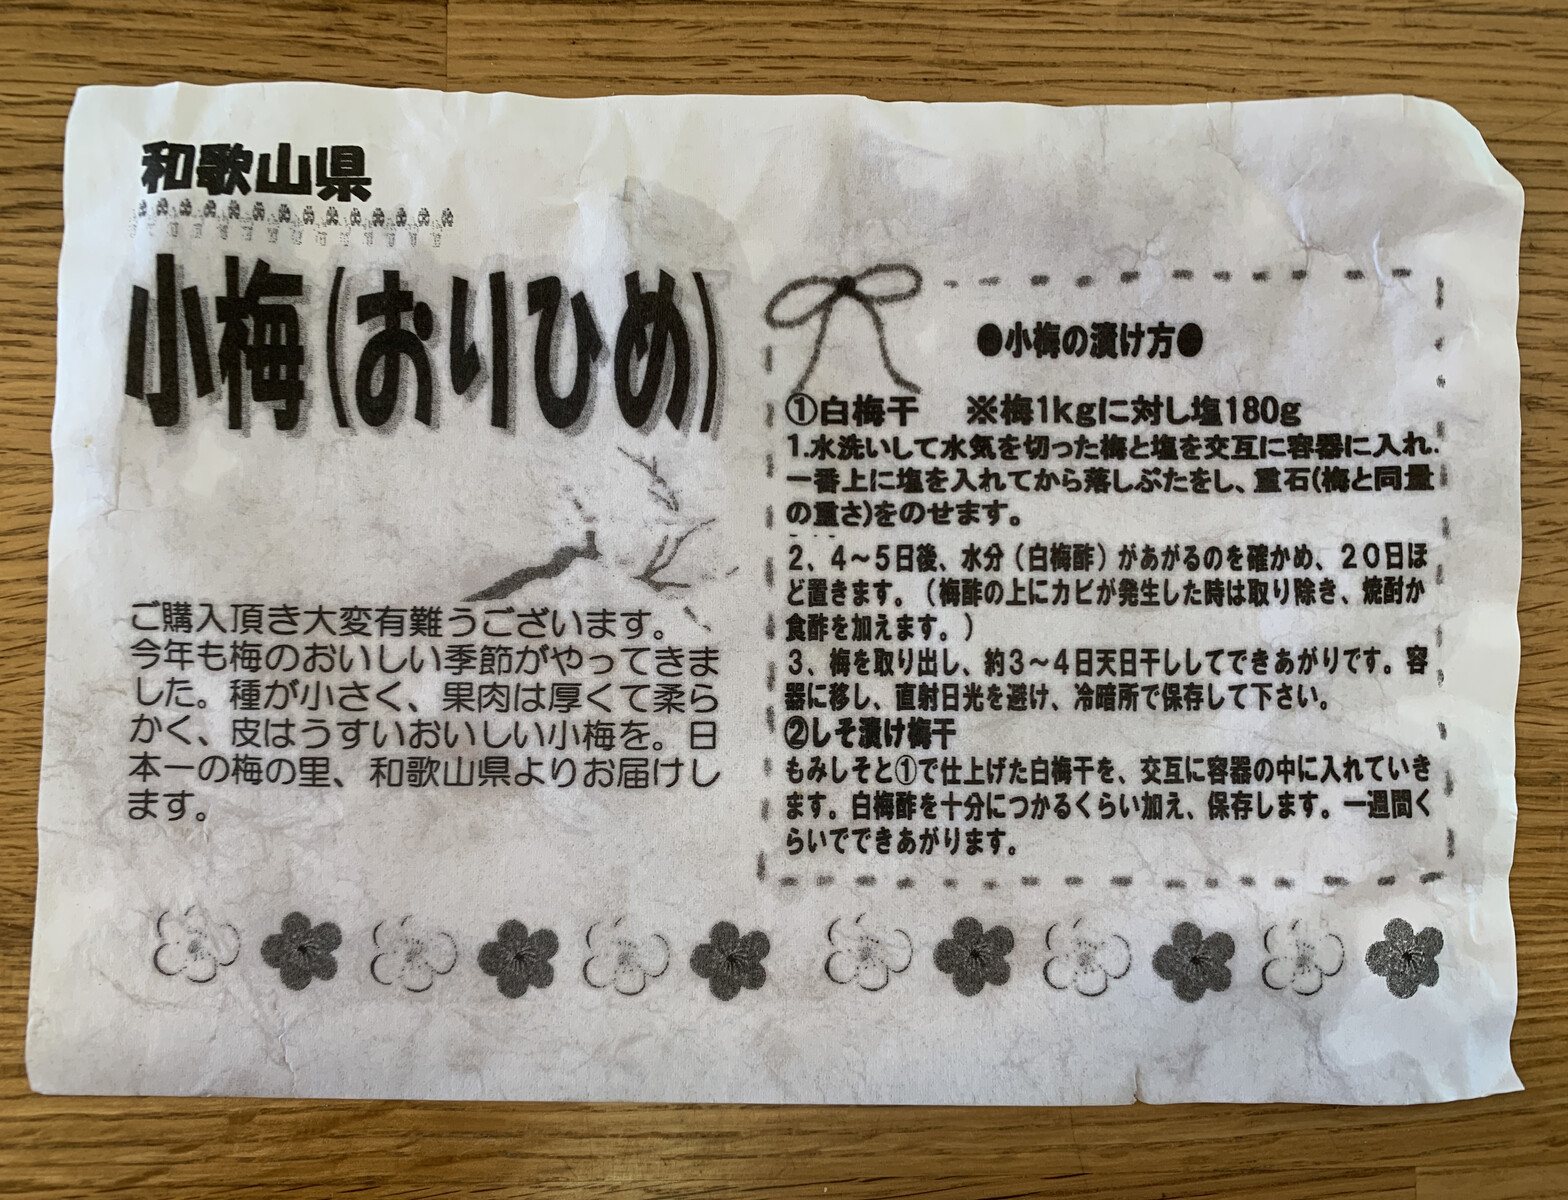 和歌山県
小梅(おりひめ)
ご購入頂き大変有難うございます。
今年も梅のおいしい季節がやってきま
した。種が小さく、果肉は厚くて柔ら
かく、皮はうすいおいしい小梅を。日
本一の梅の里、和歌山県よりお届けし
ます。
●小梅の漬け方●
①白梅干　※梅1kgに対し塩180g
1.水洗いして水気を切った梅と塩を交互に容器に入れ.
一番上に塩を入れてから落しぶたをし、重石(梅と同量
の重さ)をのせます。
2、4～5日後、水分（白梅酢）があがるのを確かめ、20日ほ
ど置きます。（梅酢の上にカビが発生した時は取り除き、焼酎か
食酢を加えます。）
3、梅を取り出し、約3～4日天日干ししてできあがりです。容
器に移し、直射日光を避け、冷暗所で保存して下さい。
②しそ漬け梅干
もみしそと①で仕上げた白梅干を、交互に容器の中に入れていき
ます。白梅酢を十分につかるくらい加え、保存します。一週間く
らいでできあがります。